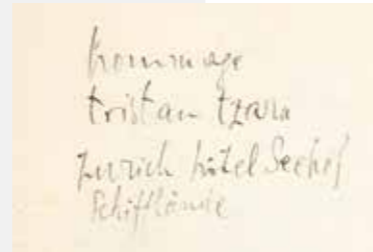 hommage
tristan tzara
zurich hôtel Seehof
Schifflände